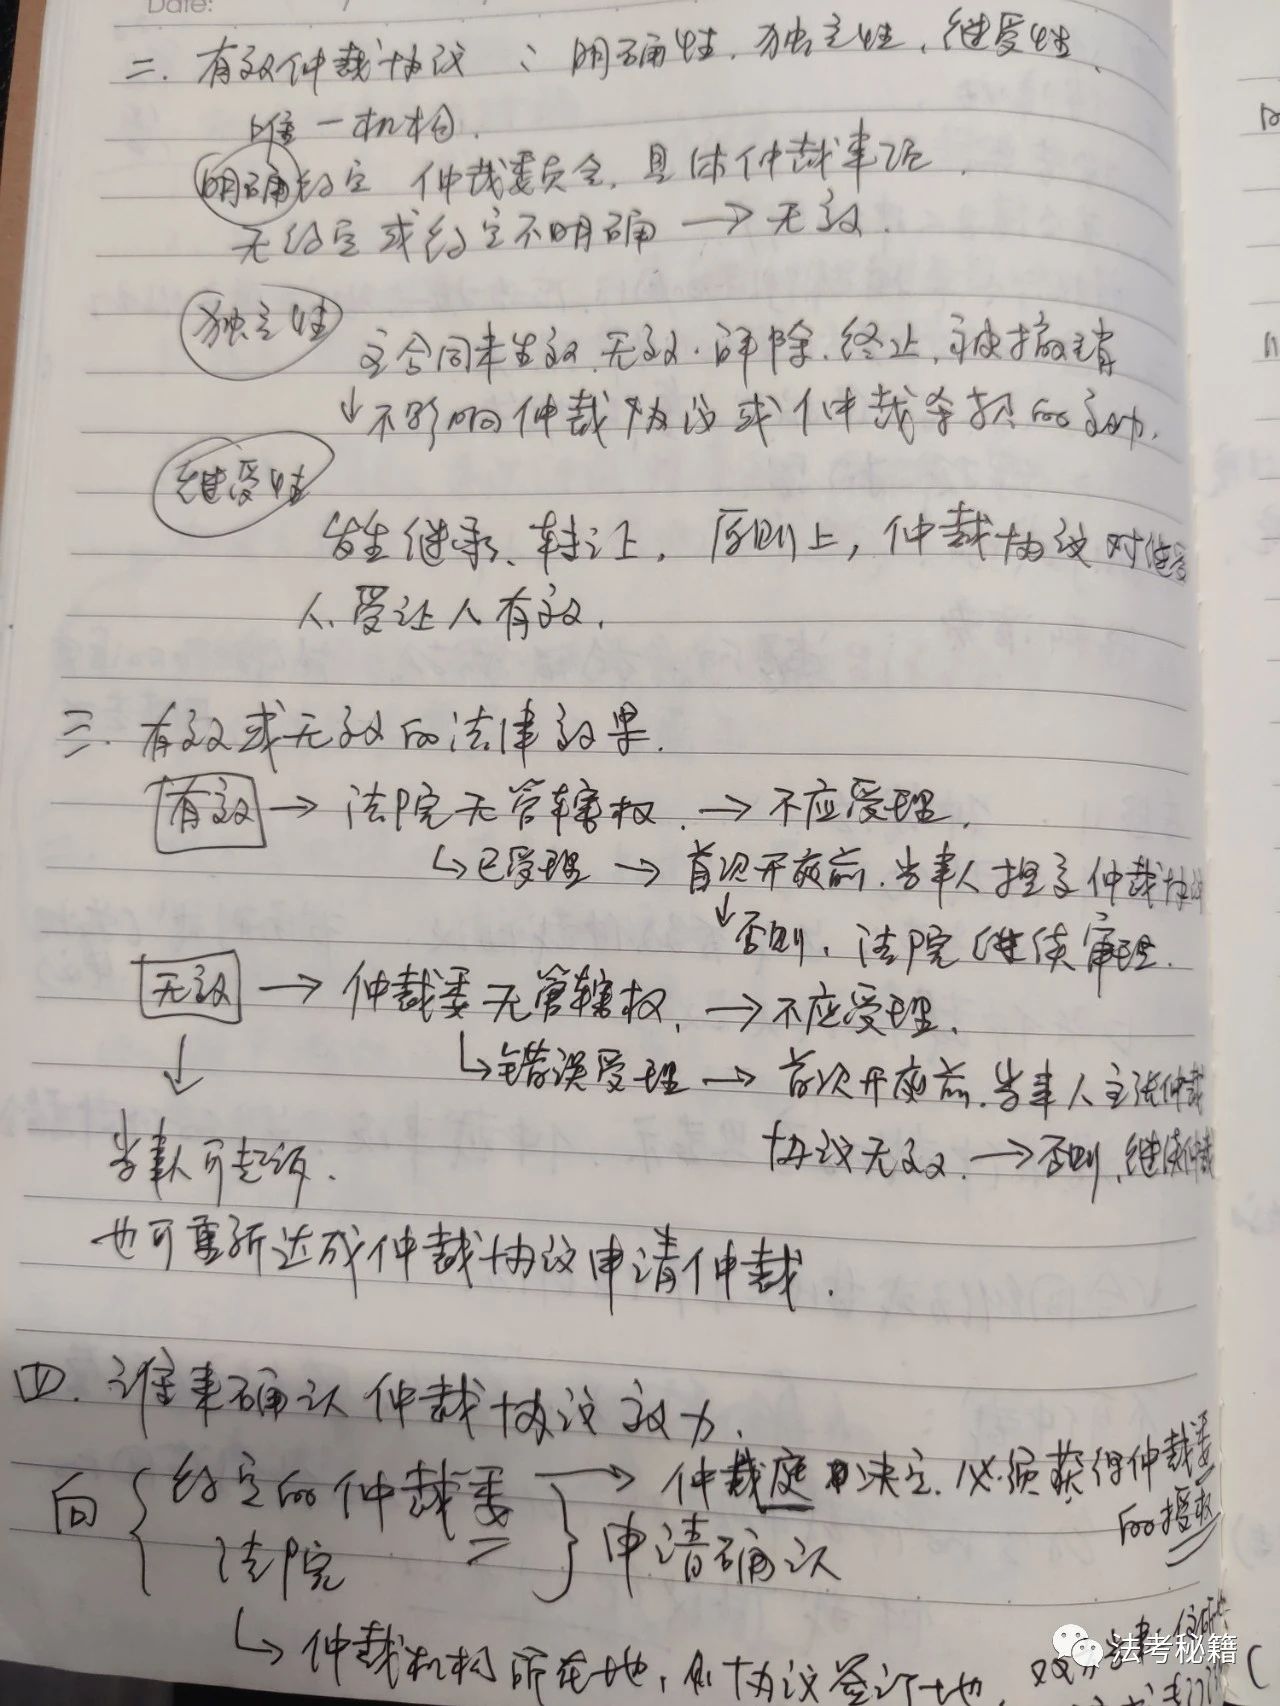 Date:
二. 有效仲裁协议 : 明确性. 独立性. 继受性.
唯一机构.
明确约定 仲裁委员会. 具体仲裁事项.
无约定或约定不明确 → 无效.
独立性 主合同未生效. 无效. 解除. 终止. 被撤销
↓不影响仲裁协议或仲裁条款的效力.
继受性
发生继承、转让, 原则上, 仲裁协议对继受
人、受让人有效.
三. 有效或无效的法律效果.
有效 → 法院无管辖权. → 不应受理.
↳已受理 → 首次开庭前. 当事人提交仲裁协议
↓否则, 法院继续审理.
无效 → 仲裁委无管辖权. → 不应受理.
↳错误受理 → 首次开庭前. 当事人主张仲裁
协议无效. → 否则, 继续仲裁
↓
当事人可起诉.
也可重新达成仲裁协议申请仲裁.
四. 谁来确认仲裁协议效力.
向 { 约定的仲裁委 → 仲裁庭 决定. 必须获得仲裁委
的授权
法院 } 申请确认
↳ 仲裁机构所在地, 协议签订地,
法考秘籍